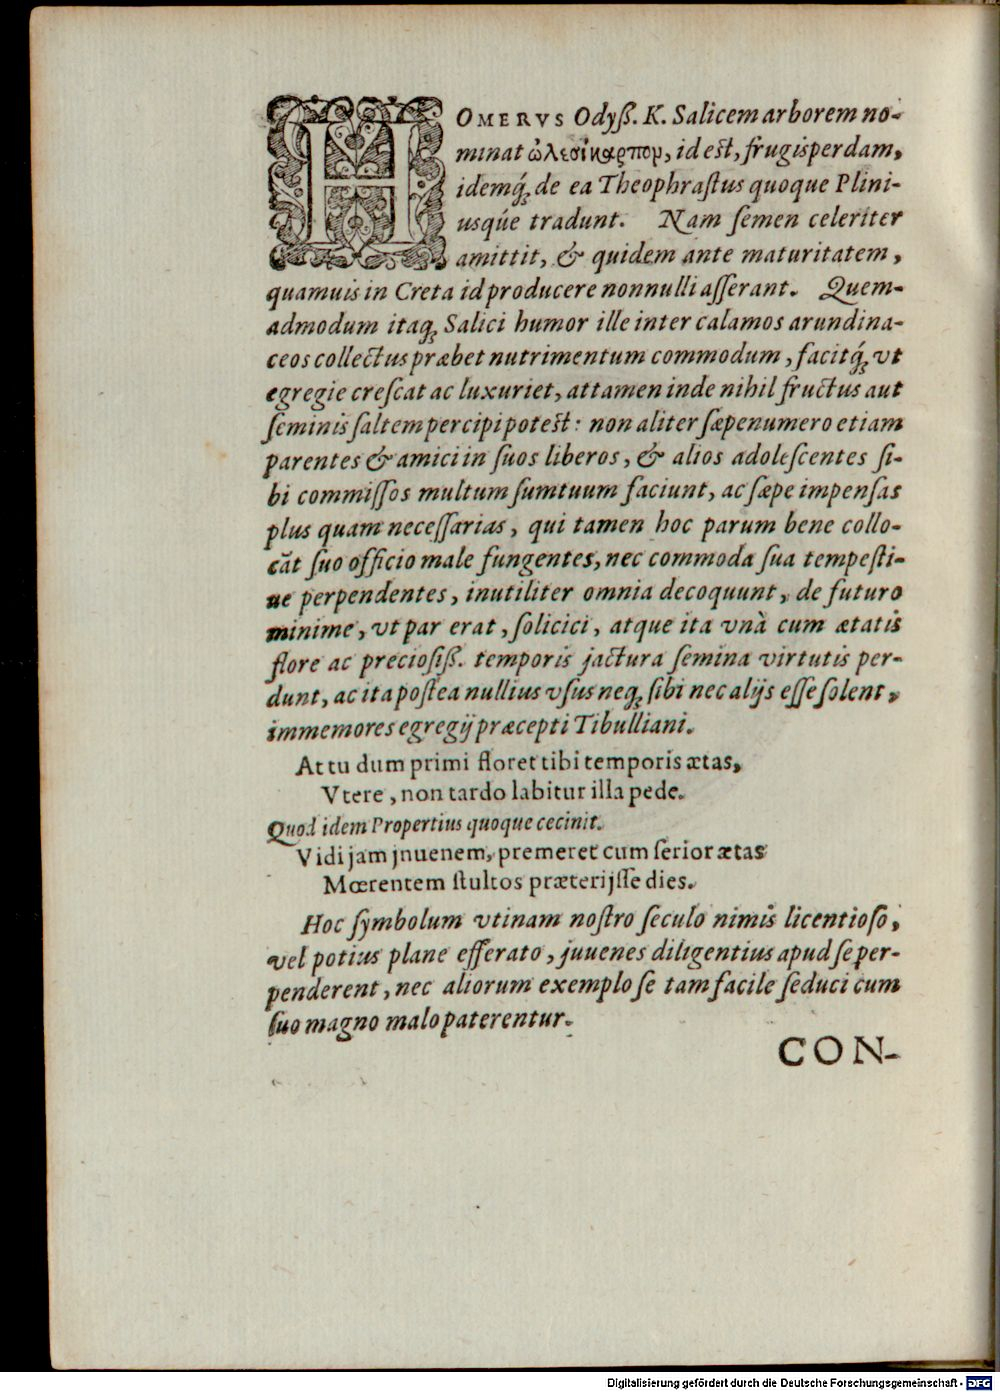 HOMERVS Odyß. K. Salicem arborem no-
minat ὠλεσίκαρπον, id est, frugisperdam,
idemq́; de ea Theophrastus quoque Plini-
usq́ue tradunt. Nam semen celeriter
amittit, & quidem ante maturitatem,
quamuis in Creta id producere nonnulli asserant. Quem-
admodum itaq; Salici humor ille inter calamos arundina-
ceos collectus præbet nutrimentum commodum, facitq́; vt
egregie crescat ac luxuriet, attamen inde nihil fructus aut
seminis saltem percipi potest: non aliter sæpenumero etiam
parentes & amici in suos liberos, & alios adolescentes si-
bi commissos multum sumtuum faciunt, ac sæpe impensas
plus quam necessarias, qui tamen hoc parum bene collo-
cāt suo officio male fungentes, nec commoda sua tempesti-
ue perpendentes, inutiliter omnia decoquunt, de futuro
minime, vt par erat, solicici, atque ita vnà cum ætatis
flore ac preciosiß. temporis jactura semina virtutis per-
dunt, ac ita postea nullius vsus neq; sibi nec alijs esse solent,
immemores egregij præcepti Tibulliani.
At tu dum primi floret tibi temporis ætas,
Vtere, non tardo labitur illa pede.
Quod idem Propertius quoque cecinit.
Vidi jam jnuenem, premeret cum serior ætas
Mœrentem stultos præterijsse dies.
Hoc symbolum vtinam nostro seculo nimis licentioso,
vel potius plane efferato, juuenes diligentius apud se per-
penderent, nec aliorum exemplo se tam facile seduci cum
suo magno malo paterentur.
CON-
Digitalisierung gefördert durch die Deutsche Forschungsgemeinschaft - DFG